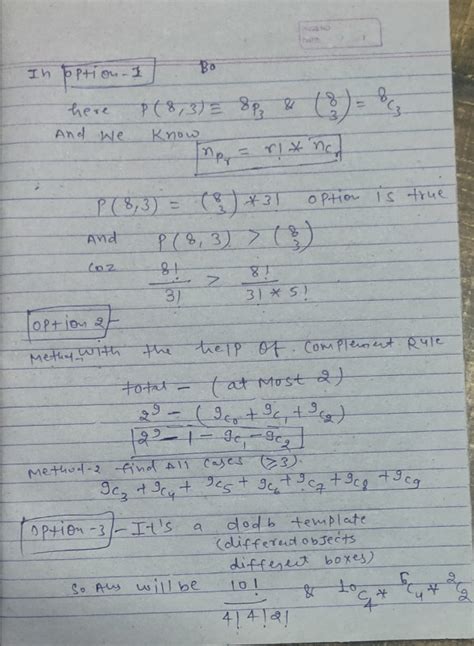 In option-1 Bo
here P(8,3) = 8P3 & (8 3) = 8C3
And We Know
nPr = r! * nCr
P(8,3) = (8 3) * 3! option is true
And P(8,3) > (8 3)
Coz 8!/3! > 8!/3! * 5!
option 2 -
With the help of Complement Rule
total - (at Most 2)
2^9 - (9C0 + 9C1 + 9C2)
2^9 - 1 - 9C1 - 9C2
Method-2 find All cases (≥3).
9C3 + 9C4 + 9C5 + 9C6 + 9C7 + 9C8 + 9C9
option-3 - It's a dodb template
(different objects
different boxes)
So Ans will be 10!/4! 4! 2! & 10C4 * 6C4 * 2C2